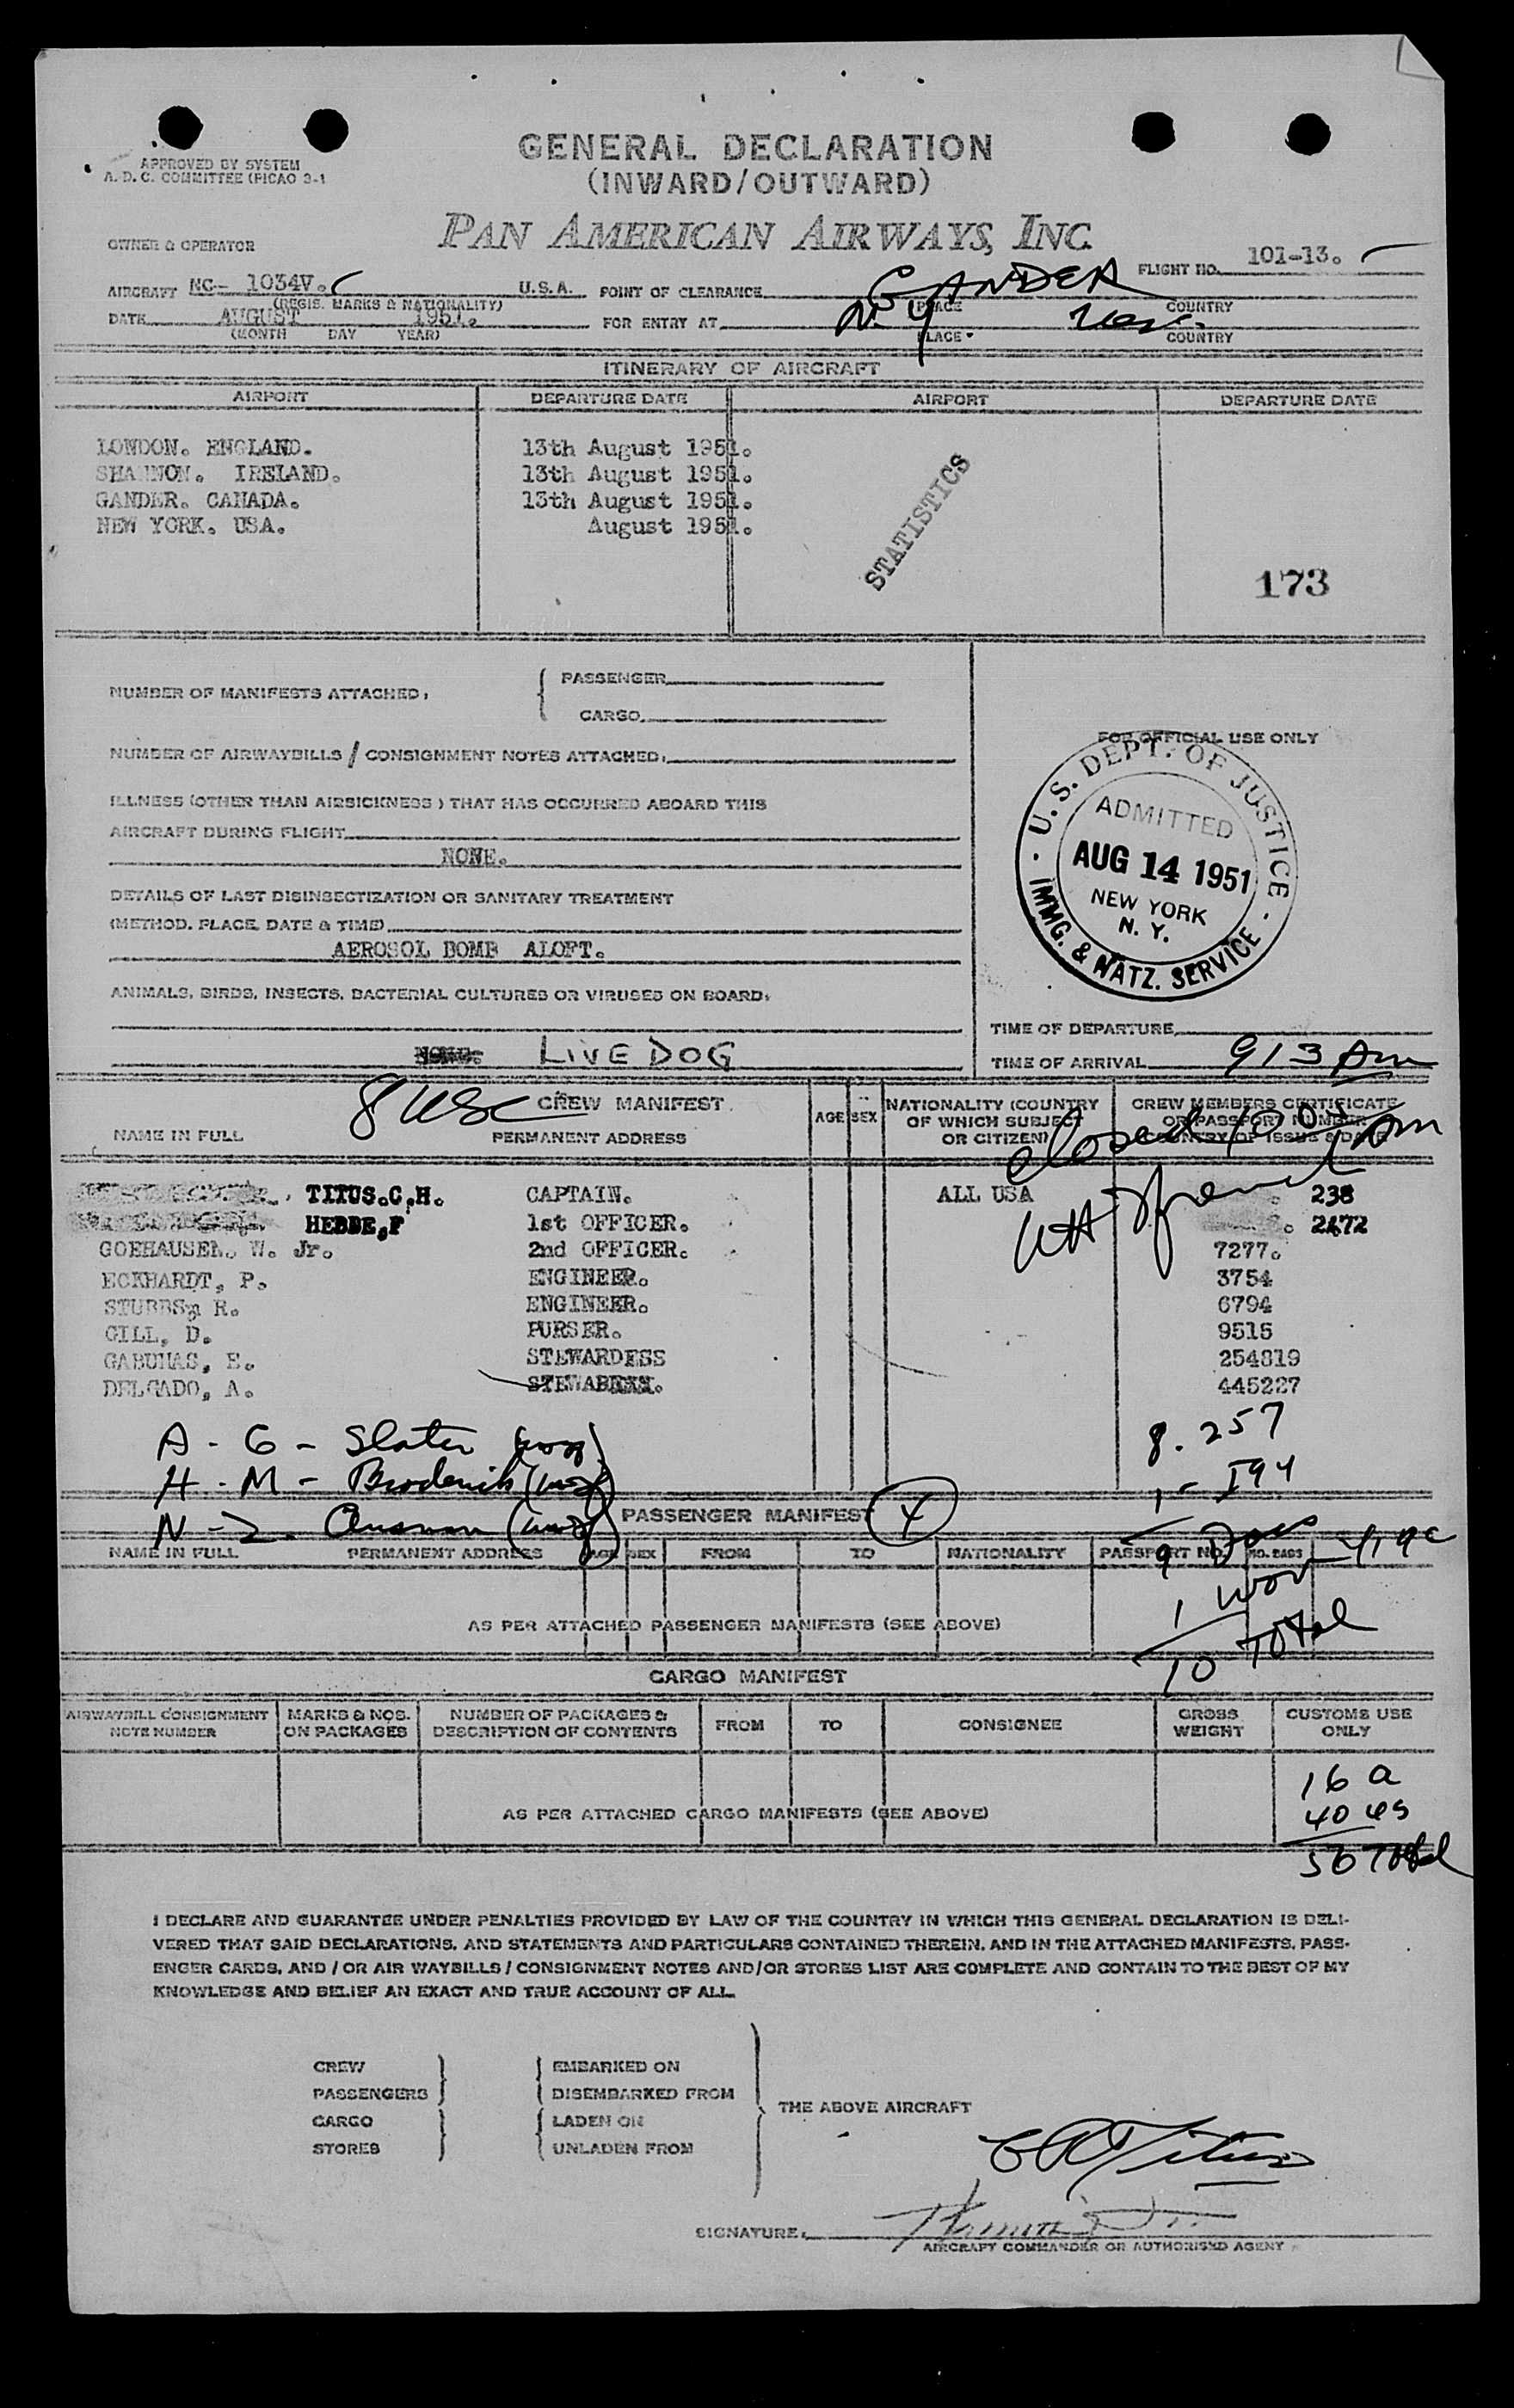 APPROVED BY SYSTEM
A. D. C. COMMITTEE (PICAO 2-1
GENERAL DECLARATION
(INWARD/OUTWARD)
OWNER & OPERATOR
PAN AMERICAN AIRWAYS, INC.
FLIGHT NO. 101-13.
AIRCRAFT NC- 1034V. U.S.A. POINT OF CLEARANCE GANDER
(REGIS. MARKS & NATIONALITY) PLACE COUNTRY
DATE AUGUST 1951. FOR ENTRY AT N.Y
(MONTH DAY YEAR) PLACE COUNTRY
ITINERARY OF AIRCRAFT
AIRPORT DEPARTURE DATE AIRPORT DEPARTURE DATE
LONDON. ENGLAND. 13th August 1951.
SHANNON. IRELAND. 13th August 1951.
GANDER. CANADA. 13th August 1951.
NEW YORK. USA. August 1951.
STATISTICS
173
NUMBER OF MANIFESTS ATTACHED: PASSENGER
CARGO
NUMBER OF AIRWAYBILLS / CONSIGNMENT NOTES ATTACHED:
ILLNESS (OTHER THAN AIRSICKNESS) THAT HAS OCCURRED ABOARD THIS
AIRCRAFT DURING FLIGHT
NONE.
DETAILS OF LAST DISINSECTIZATION OR SANITARY TREATMENT
(METHOD, PLACE, DATE & TIME)
AEROSOL BOMB ALOFT.
ANIMALS, BIRDS, INSECTS, BACTERIAL CULTURES OR VIRUSES ON BOARD:
LIVE DOG
FOR OFFICIAL USE ONLY
U. S. DEPT. OF JUSTICE
ADMITTED
AUG 14 1951
NEW YORK
N. Y.
IMMG. & NATZ. SERVICE
TIME OF DEPARTURE
TIME OF ARRIVAL 913 Am
8 usc CREW MANIFEST
NAME IN FULL PERMANENT ADDRESS AGE SEX NATIONALITY (COUNTRY OF WHICH SUBJECT OR CITIZEN) CREW MEMBERS CERTIFICATE OR PASSPORT NUMBER COUNTRY OF ISSUE & DATE
closed Am
TITUS.C.H. CAPTAIN. ALL USA 238
HEDDE,F 1st OFFICER. 2472
GOEHAUSEN. W. Jr. 2nd OFFICER. 7277.
ECKHARDT, P. ENGINEER. 3754
STUBBS, R. ENGINEER. 6794
GILL, D. PURSER. 9515
GABUHAS, E. STEWARDESS 254819
DELGADO, A. 445227
A - G - Slater
8. 257
H - M - Broderick
1 - I94
PASSENGER MANIFEST
NAME IN FULL PERMANENT ADDRESS AGE SEX FROM TO NATIONALITY PASSPORT NO. NO. BAGS
9 Docs
1 wov
10 Total
AS PER ATTACHED PASSENGER MANIFESTS (SEE ABOVE)
CARGO MANIFEST
AIRWAYBILL CONSIGNMENT NOTE NUMBER MARKS & NOS. ON PACKAGES NUMBER OF PACKAGES & DESCRIPTION OF CONTENTS FROM TO CONSIGNEE GROSS WEIGHT CUSTOMS USE ONLY
16 a
40 us
56 Total
AS PER ATTACHED CARGO MANIFESTS (SEE ABOVE)
I DECLARE AND GUARANTEE UNDER PENALTIES PROVIDED BY LAW OF THE COUNTRY IN WHICH THIS GENERAL DECLARATION IS DELI-
VERED THAT SAID DECLARATIONS, AND STATEMENTS AND PARTICULARS CONTAINED THEREIN, AND IN THE ATTACHED MANIFESTS, PASS-
ENGER CARDS, AND / OR AIR WAYBILLS / CONSIGNMENT NOTES AND/OR STORES LIST ARE COMPLETE AND CONTAIN TO THE BEST OF MY
KNOWLEDGE AND BELIEF AN EXACT AND TRUE ACCOUNT OF ALL.
CREW EMBARKED ON
PASSENGERS DISEMBARKED FROM
THE ABOVE AIRCRAFT
CARGO LADEN ON
STORES UNLADEN FROM
SIGNATURE:
AIRCRAFT COMMANDER OR AUTHORISED AGENT